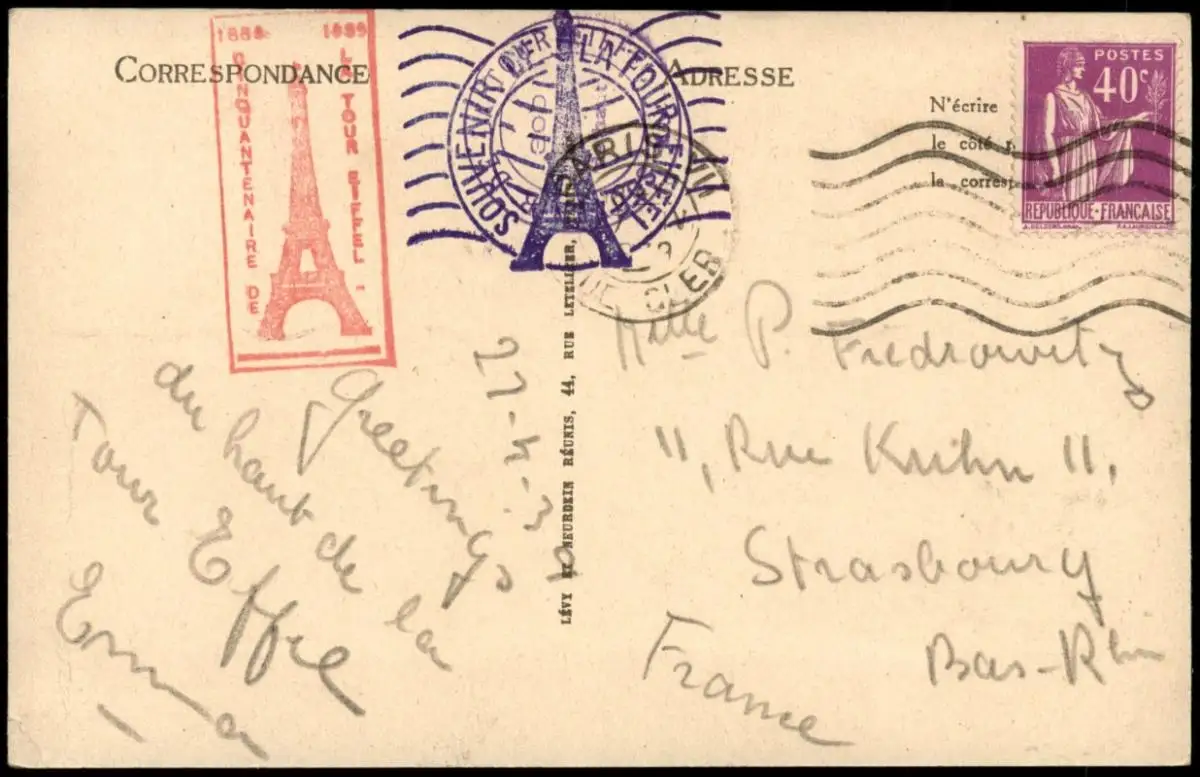 CORRESPONDANCE
ADRESSE
1889 1939
CINQUANTENAIRE DE
LA TOUR EIFFEL
SOUVENIR DE LA TOUR EIFFEL
PARIS VII
RUE CLER
N'écrire
le côté
la corresp
POSTES
40c
REPUBLIQUE·FRANÇAISE
LÉVY ET NEURDEIN RÉUNIS, 44, RUE LETELLIER,
Greetings
du haut de la
Tour Effel
Emma
Mlle P. Fredrowitz
11, Rue Kuhn 11,
Strasbourg
Bas-Rhin
France